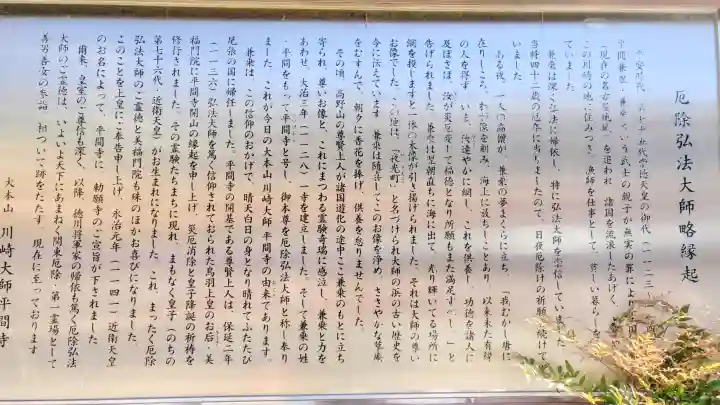 厄除弘法大師略縁起
平安時代、第七十五代崇徳天皇の御代(一一二三
平間兼豊・兼乗という武士の親子が無実の罪により生国
(現在の名古屋地域)を追われ、諸国を流浪したあげく、
この川崎の地に住みつき、漁師を仕事として、貧しい暮らしを
ていました
兼乗は深く仏法に帰依し、特に弘法大師を崇信していました
当時四十二歳の厄年に当りましたので、日夜厄除けの祈願を続けて
いました
ある夜、一人の高僧が、兼乗の夢まくらに立ち、「我むかし唐に
在りしころ、わが像を刻み、海上に放ちしことあり。以来未だ有縁
の人を得ず。いま、汝速やかに網し、これを供養し、功徳を諸人に
及ぼさば、汝が災厄変じて福徳となり所願もまた満足すべし」と
告げられました。兼乗は翌朝直ちに海に出て、光り輝いている場所に
網を投じますと一体の木像が引き揚げられました。それは大師の尊い
お像でした。この地は、「夜光町」と名づけられ大師の浜の古い歴史を
今に伝えています。兼乗は随喜してこのお像を浄め、ささやかな草庵
をむすんで、朝夕に香花を捧げ、供養を怠りませんでした。
その頃、高野山の尊賢上人が諸国遊化の途中ここ兼乗のもとに立ち
寄られ、尊いお像と、これにまつわる霊験奇瑞に感泣し、兼乗と力を
あわせ、大治三年(一一二八)一寺を建立しました。そして兼乗の姓
・平間をもって平間寺と号し、御本尊を厄除弘法大師と称し奉り
ました。これが今日の大本山川崎大師平間寺の由来であります。
兼乗は、この信仰のおかげで、晴天白日の身となり晴れてふたたび
尾張の国に帰任しました。平間寺の開基である尊賢上人は、保延二年
(一一三六)弘法大師を篤く信仰されておられた鳥羽上皇のお后・美
福門院に平間寺開山の縁起を申し上げ、災厄消除と皇子降誕の祈祷を
修行されました。その霊験たちまちに現れ、まもなく皇子(のちの
第七十六代 近衛天皇)がお生まれになりました。これ、まったく厄除
弘法大師のご霊徳と美福門院も殊のほかお喜びになりました。
このことを上皇にご奉告申し上げ、永治元年(一一四一)近衛天皇
のお名によって、平間寺に 勅願寺のご宣旨が下されました
爾来、皇室のご尊信も深く、以降 徳川将軍家の帰依も篤く厄除弘法
大師のご霊徳は、いよいよ天下にあまねく関東厄除・第一霊場として
善男善女の参詣 相ついで跡をたたず、現在に至っております
大本山 川崎大師平間寺